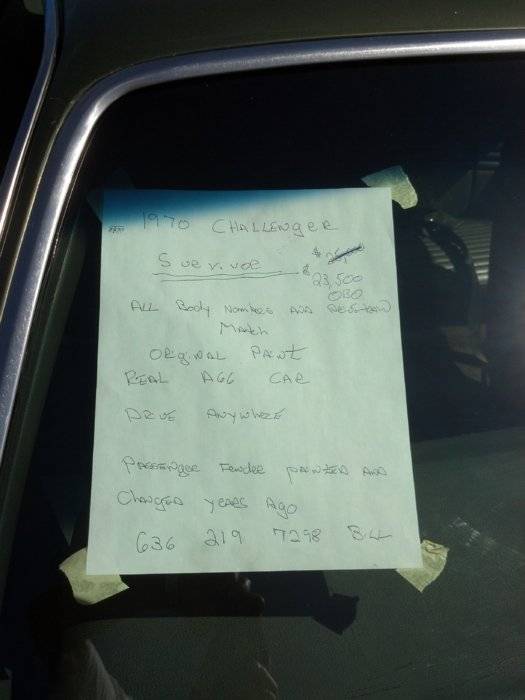 1970 CHALLENGER
SURVIVOR
$
$ 23,500
OBO
ALL Body NumbeRs AND
Match
ORgiNAL PAiNt
REAL A66 CAR
DRIVE ANYwheRE
PASSENgeR FeNdeR pAiNTED AND
ChANgED yeARS Ago
636 219 7298 Bill